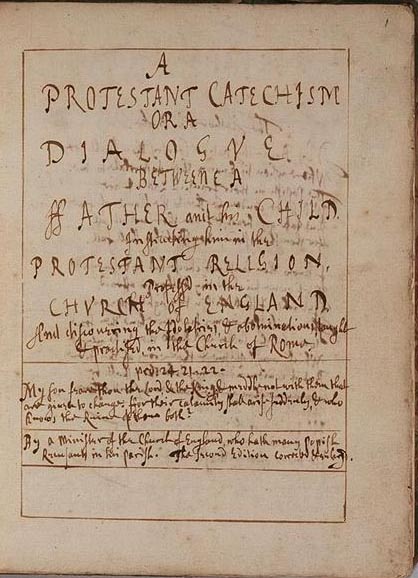 1
A
PROTESTANT CATECHISM
OR A
DIALOGVE
BETWEENE A
ffATHER and his CHILD.
Instructing him in the
PROTESTANT RELIGION.
Professed in the
CHVRCH of ENGLAND
And discovering the Idolatries & abominations taught
& practised in the Church of Rome
24. 21. 22.
My son feare thou the Lord & the King & meddle not with them that
are given to change, for their calamity shall arise suddenly, & who
knows the Ruine of them both?
By a Minister of the Church of England, who hath many Popish
in his parish. The Second Edition corrected